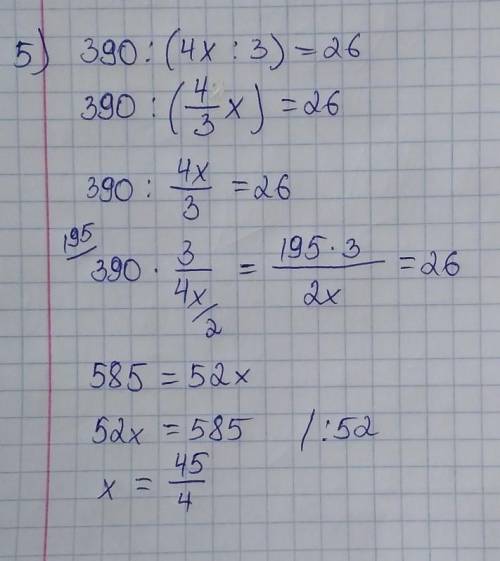 5) 390 : (4x : 3) = 26
390 : (4/3 x) = 26
390 : 4x/3 = 26
195
390 · 3/4x = 195·3/2x = 26
2
585 = 52x
52x = 585 /:52
x = 45/4